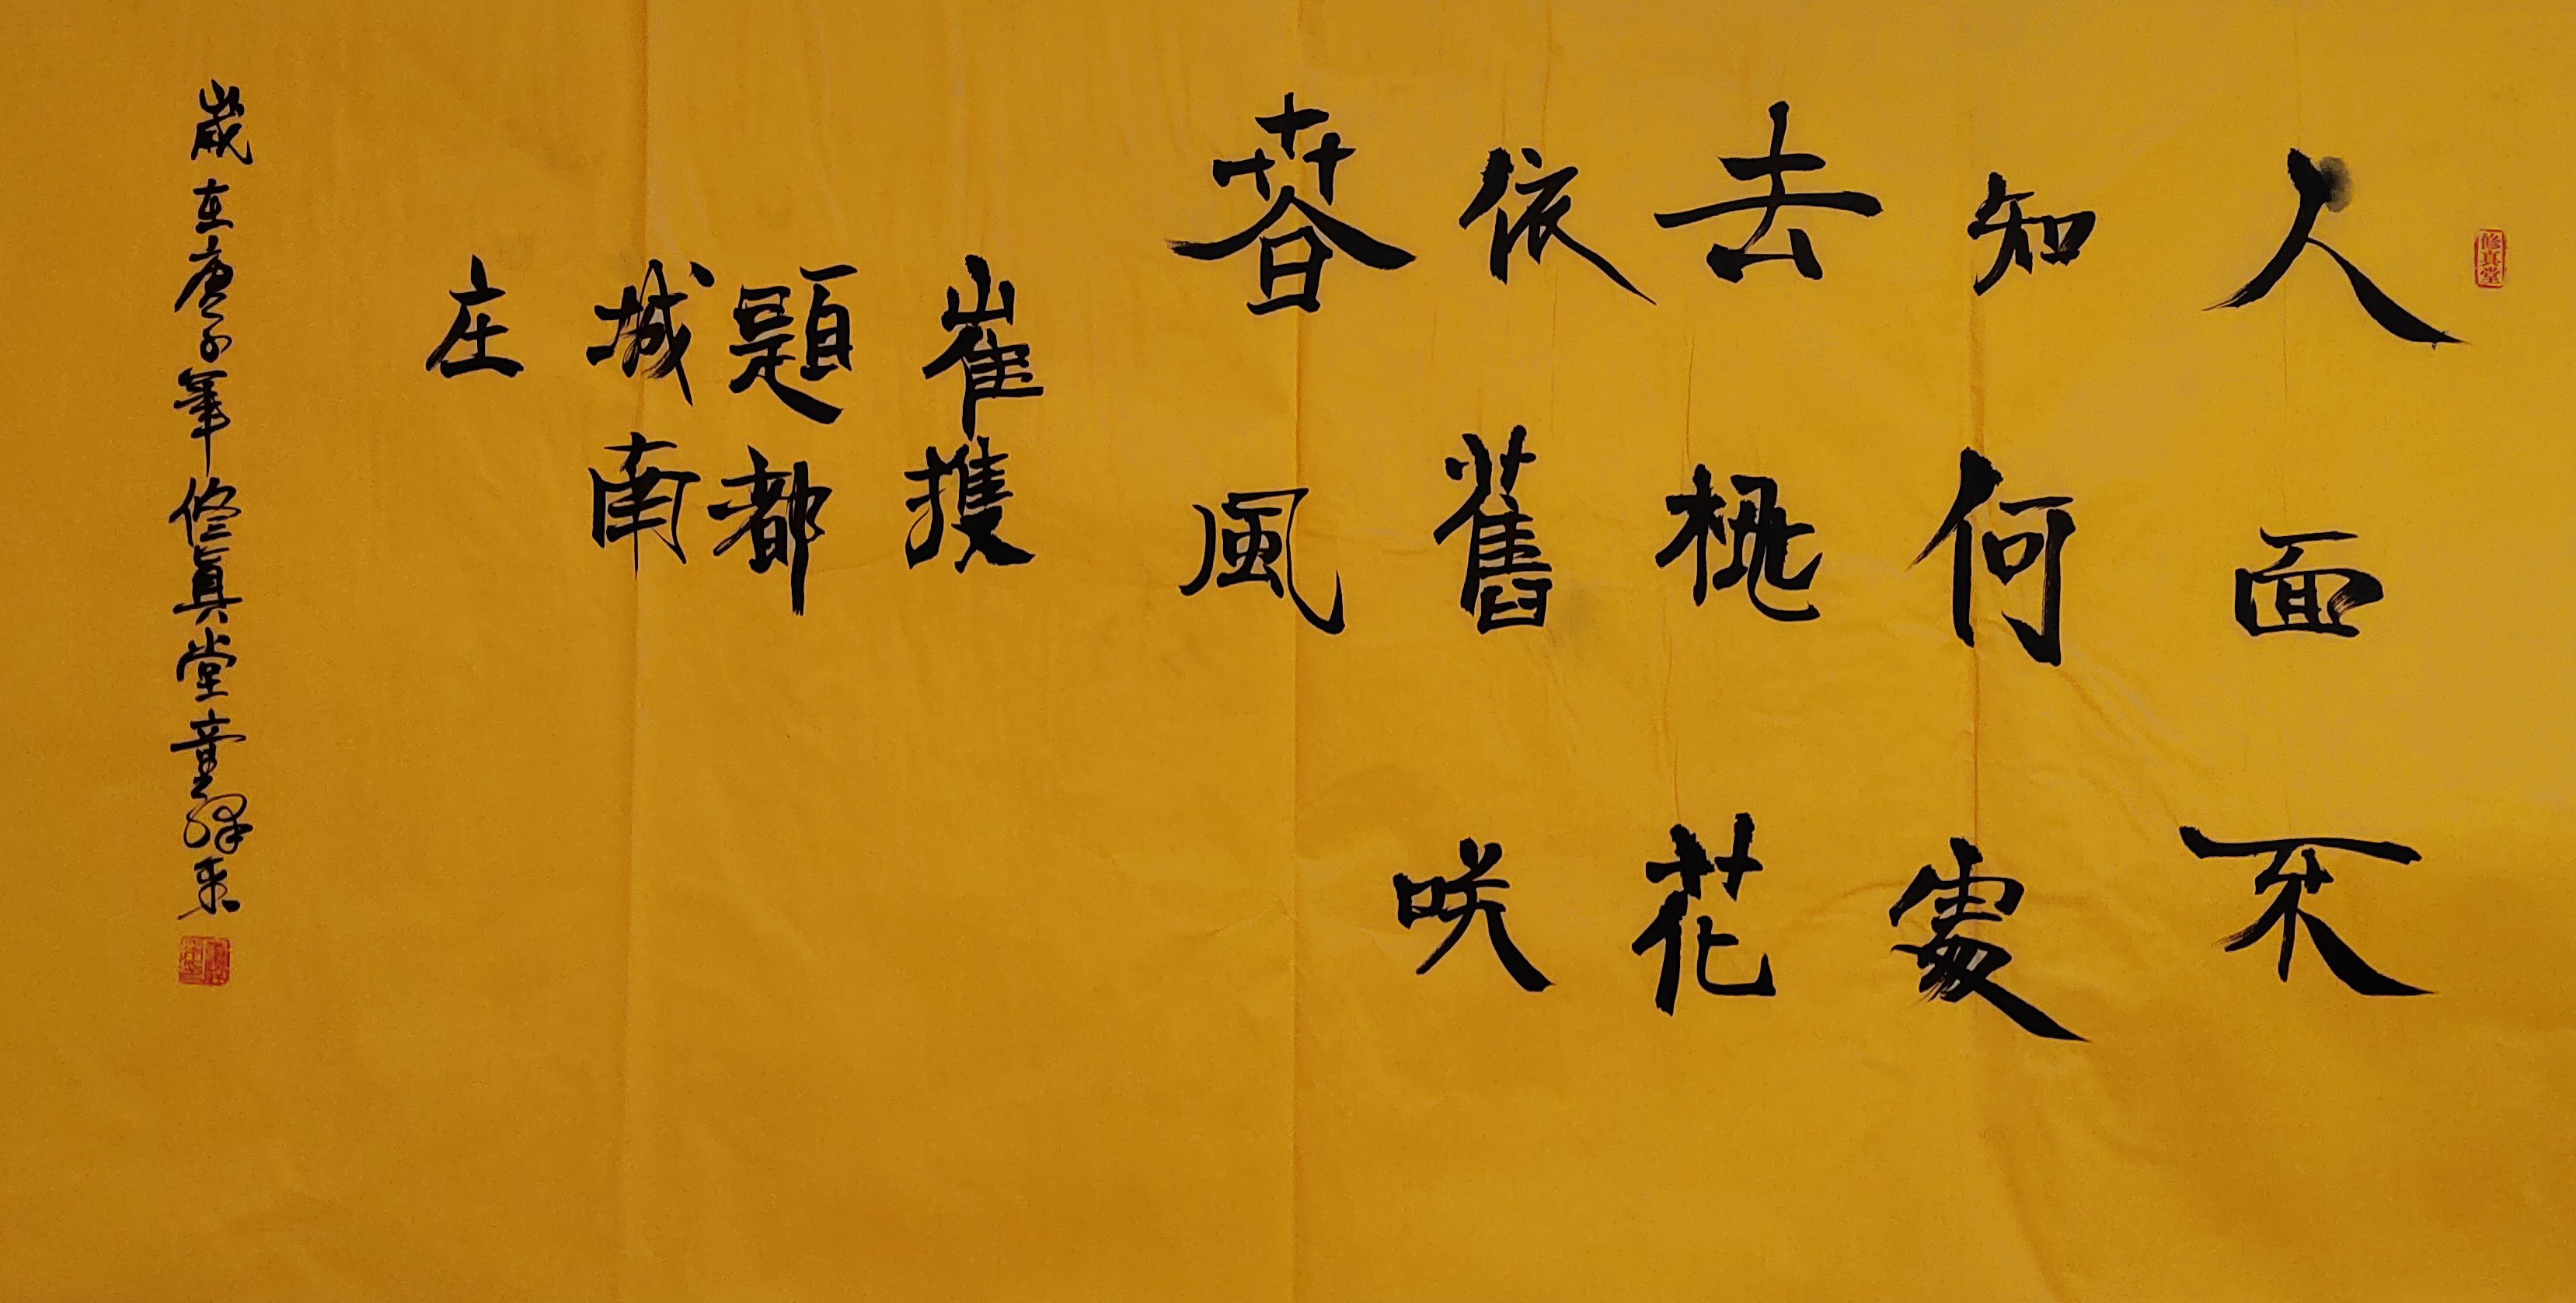 修真堂
人面不
知何處
去桃花
依舊咲
春風
崔擭
題都
城南
庄
歲在庚子筆修真堂童祥来